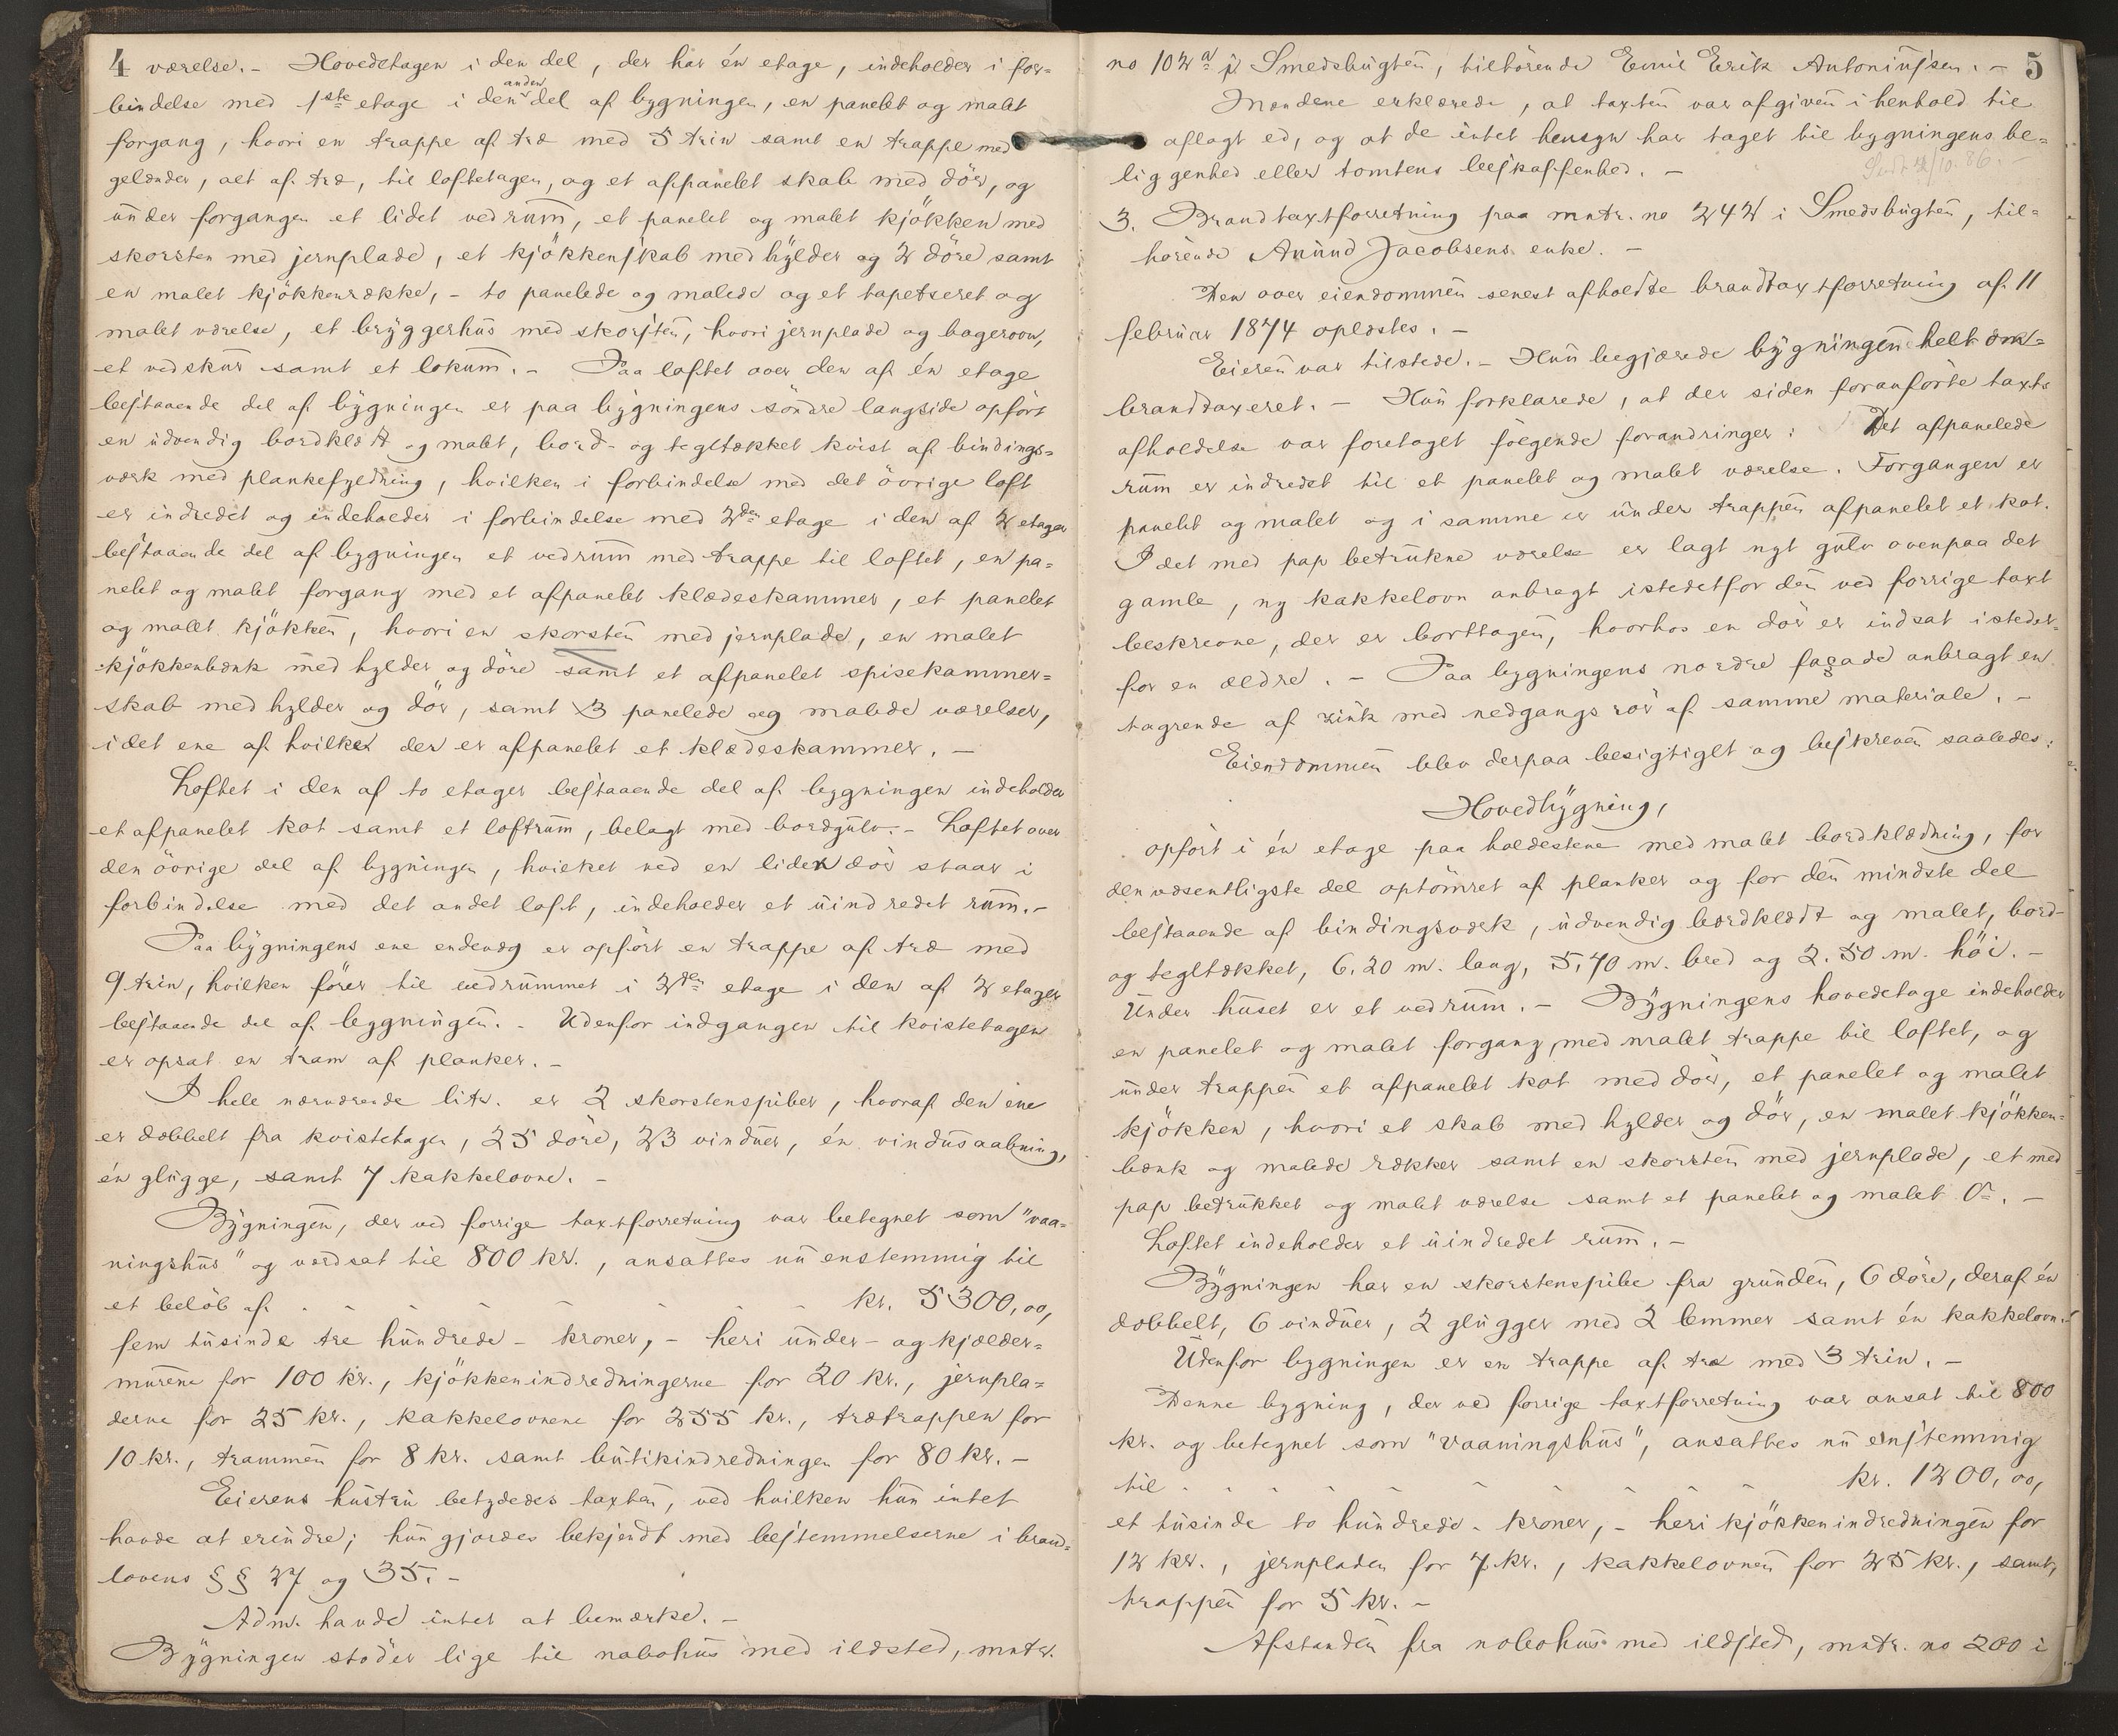 4
værelse. – Hovedetagen i den del, der har én etage, indeholder i for-
bindelse med 1ste etage i den anden del af bygningen, en panelet og malet
forgang, hvori en trappe af træ med 5 trin samt en trappe med
gelænder, alt af træ, til loftetagen, og et afpanelet skab med dör, og
under forgangen et lidet vedrum, et panelet og malet kjökken med
skorsten med jernplade, et kjökkenskab med hylder og 2 döre samt
en malet kjökkenrække, – to panelede og malede og et tapetseret og
malet værelse, et bryggerhus med skorsten, hvori jernplade og bagerovn,
et vedskur samt et lokum. – Paa loftet over den af én etage
bestaaende del af bygningen er paa bygningens söndre langside opfört
en udvendig bordklædt og malt, bord- og tegltækket kvist af bindings-
værk med plankefyldning, hvilken i forbindelse med det övrige loft
er indredet og indeholder i forbindelse med 2den etage i den af 2 etager
bestaaende del af bygningen et vedrum med trappe til loftet, en pa-
nelet og malet forgang med et afpanelet klædeskammer, et panelet
og malet kjökken, hvori en skorsten med jernplade, en malet
kjökkenbænk med hylder og döre samt et afpanelet spisekammer-
skab med hylder og dör, samt 3 panelede og malede værelser,
i det ene af hvilke der er afpanelet et klædeskammer. –
Loftet i den af to etager bestaaende del af bygningen indeholder
et afpanelet kot samt et loftrum, belagt med bordgulv. – Loftet over
den övrige del af bygningen, hvilket ved en liden dör staar i
forbindelse med det andet loft, indeholder et uindredet rum. –
Paa bygningens ene endevæg er opfört en trappe af træ med
9 trin, hvilken förer til vedrummet i 2den etage i den af 2 etager
bestaaende del af bygningen. – Udenfor indgangen til kvistetagen
er opsat en tram af planker. –
I hele nærværende litr. er 2 skorstenspiber, hvoraf den ene
er dobbelt fra kvistetagen, 25 döre, 23 vinduer, én vindusaabning,
én glugge, samt 7 kakkelovne. –
Bygningen, der ved forrige taxtforretning var betegnet som "vaa-
ningshus" og værdsat til 800 kr., ansattes nu enstemmig til
et belöb af - - - - - - - kr. 5300,00,
fem tusinde tre hundrede – kroner, – heri under- og kjælder-
murene for 100 kr., kjökkenindredningerne for 20 kr., jernpla-
derne for 25 kr., kakkelovnene for 255 kr., trætrappen for
10 kr., trammen for 8 kr. samt butikindredningen for 80 kr. –
Eierens hustru betydedes taxten, ved hvilken hun intet
havde at erindre; hun gjordes bekjendt med bestemmelserne i brand-
lovens §§ 27 og 35. –
Adm. havde intet at bemærke. –
Bygningen stöder lige til nabohus med ildsted, mntr.
5
no 102a i Smedsbugten, tilhörende Emil Erik Antoniussen. –
Mændene erklærede, at taxten var afgiven i henhold til
aflagt ed, og at de intet hensyn har taget til bygningens be-
liggenhed eller tomtens beskaffenhed. –
3. Brandtaxtforretning paa mntr. no 242 i Smedsbugten, til-
hörende Anund Jacobsens enke. –
Den over eiendommen senest afholdte brandtaxtforretning af 11
februar 1874 oplæstes. –
Eieren var tilstede. – Hun begjærede bygningen helt om-
brandtaxeret. – Hun forklarede, at der siden foranförte taxts
afholdelse var foretaget fölgende forandringer: Det afpanelede
rum er indredet til et panelet og malet værelse. Forgangen er
panelet og malet og i samme er under trappen afpanelet et kot.
I det med pap betrukne værelse er lagt nyt gulv ovenpaa det
gamle, ny kakkelovn anbragt istedetfor den ved forrige taxt
beskrevne, der er borttagen, hvorhos en dör er indsat istedet-
for en ældre. – Paa bygningens nordre façade anbragt en
tagrende af zink med nedgangsrör af samme materiale. –
Eiendommen blev derpaa besigtiget og beskreven saaledes:
Hovedbygning,
opfört i én etage paa holdestene med malet bordklædning, for
den væsentligste del optömret af planker og for den mindste del
bestaaende af bindingsværk, udvendig bordklædt og malet, bord-
og tegltækket, 6.20 m. lang, 5,70 m. bred og 2.50 m. höi. –
Under huset er et vedrum. – Bygningens hovedetage indeholder
en panelet og malet forgang, med malet trappe til loftet, og
under trappen et afpanelet kot med dör, et panelet og malet
kjökken, hvori et skab med hylder og dör, en malet kjökken-
bænk og malede rækker samt en skorsten med jernplade, et med
pap betrukket og malet værelse samt et panelet og malet do. –
Loftet indeholder et uindredet rum. –
Bygningen har en skorstenspibe fra grunden, 6 döre, deraf én
dobbelt, 6 vinduer, 2 glugger med 2 lemmer samt én kakkelovn. –
Udenfor bygningen er en trappe af træ med 3 trin. –
Denne bygning, der ved forrige taxtforretning var ansat til 800
kr. og betegnet som "vaaningshus", ansattes nu enstemmig
til - - - - - - - - kr. 1200,00,
et tusinde to hundrede – kroner, – heri kjökkenindredningen for
12 kr., jernpladen for 7 kr., kakkelovnen for 25 kr., samt
trappen for 5 kr. –
Afstanden fra nabohus med ildsted, mntr. no 200 i